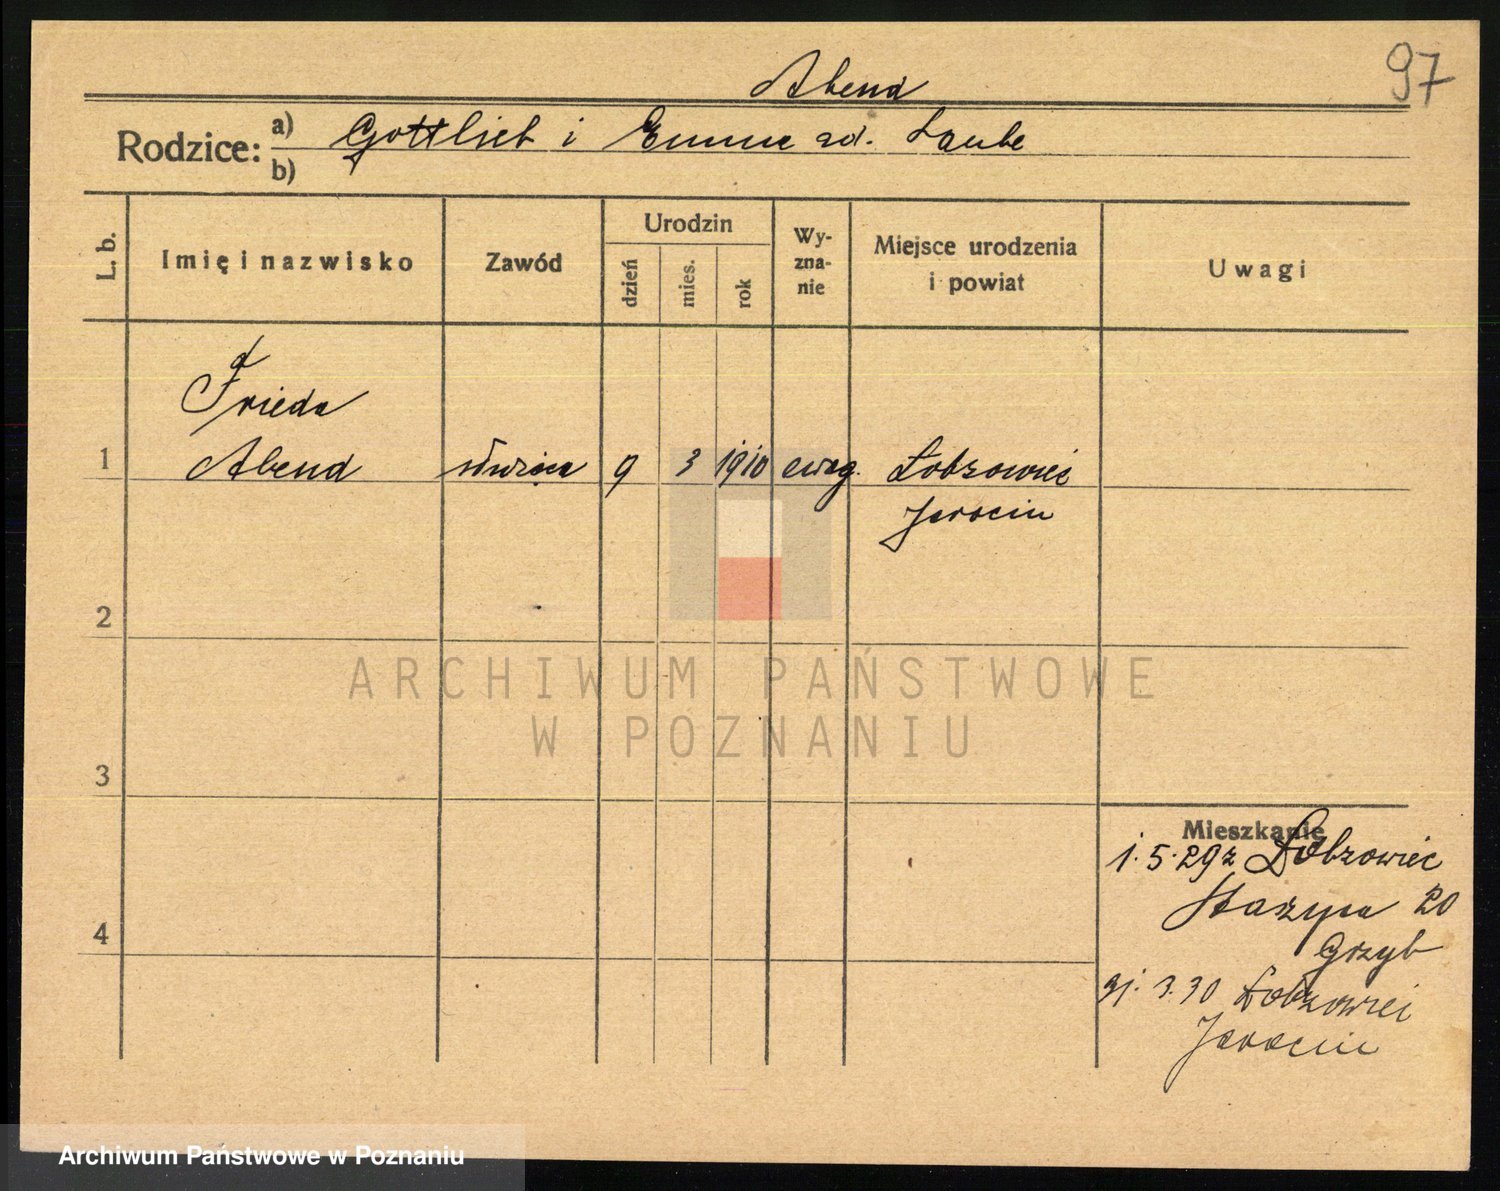 97
Abend
Rodzice: a) Gottlieb i Emma zd. Laube
b)
L. b.
Imię i nazwisko
Zawód
Urodzin
dzień
mies.
rok
Wy-
zna-
nie
Miejsce urodzenia
i powiat
Uwagi
Frieda
1 Abend służąca 9 3 1910 ewag. Łobzowiec
Jarocin
2
ARCHIWUM PAŃSTWOWE
W POZNANIU
3
Mieszkanie
1.5.29 z Łobzowiec
20
4
Grzyb
31.3.30 Łobzowiec
Jarocin
Archiwum Państwowe w Poznaniu